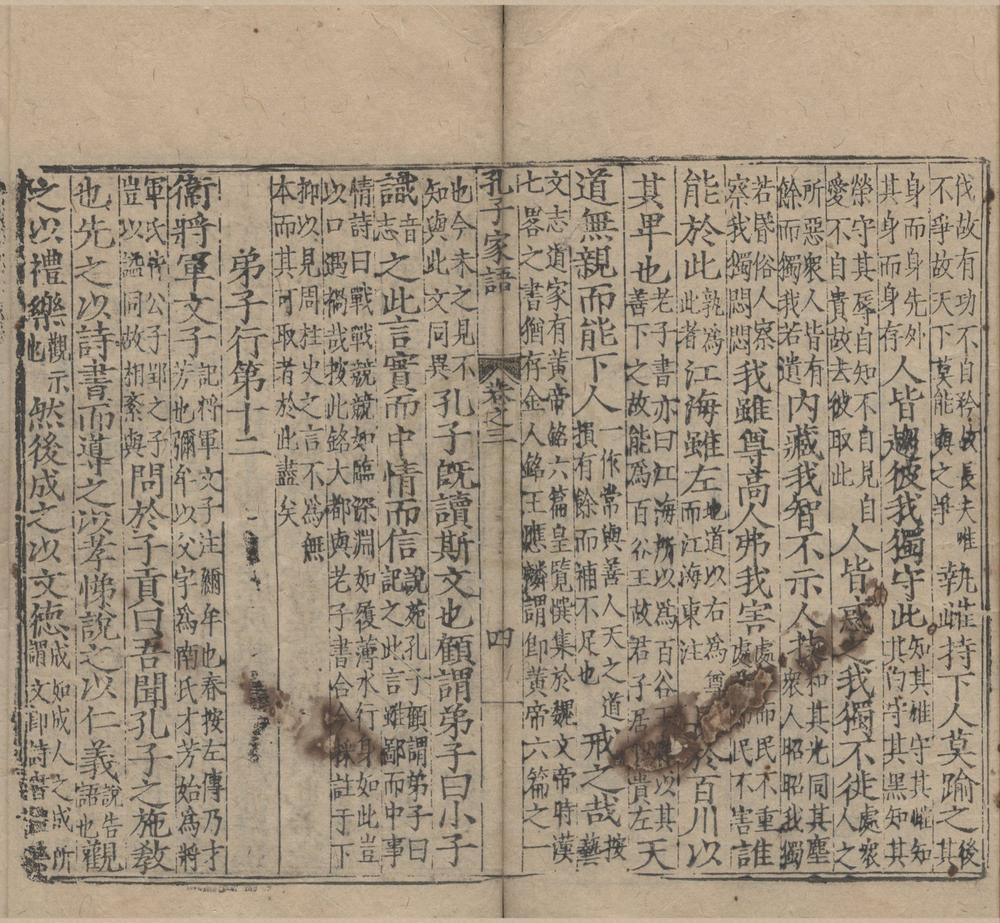 伐故有功不自矜故長夫唯
不爭故天下莫能與之爭
執雌持下人莫踰之
後
其
身而身先外
其身而身存
人皆趨彼我獨守此
知其雄守其雌知
其白守其黑知其
榮守其辱自知不自見自
愛不自貴故去彼取此
人皆惑我獨不徙
處衆
人之
所惡衆人皆有
餘而獨我若遺
內藏我智不示人技
和其光同其塵
衆人昭昭我獨
若昬俗人察
察我獨悶悶
我雖尊高人弗我害
處而民不重
民不害
誰
能於此
孰爲
此者
江海雖左
地道以右爲尊
而江海東注
於百川以
其卑也
老子書亦曰江海所以爲百谷以其
善下之故能爲百谷王故君子居則貴左
天
道無親而能下人
一作常與善人天之道
損有餘而補不足也
戒之哉
按
藝
文志道家有黃帝銘六篇皇覽撰集於魏文帝時漢
七畧之書猶存金人銘王應麟謂卽黃帝六篇之一
孔子家語 卷之三 四
也今未之見不
知與此文同異
孔子旣讀斯文也顧謂弟子曰小子
識
音
志
之此言實而中情而信
說苑孔子顧謂弟子曰
記之此言雖鄙而中事
情詩曰戰戰兢兢如臨深淵如履薄冰行身如此豈
以口遇禍哉按此銘大都與老子書合今採註于下
抑以見周柱史之言不爲無
本而其可取者於此盡矣
弟子行第十二
衞將軍文子
記將軍文子注彌牟也春按左傳乃才
芳也彌牟以父字爲南氏才芳始爲將
軍氏皆公子郢之子
豈以謚同故相紊與
問於子貢曰吾聞孔子之施敎
也先之以詩書而導之以孝悌說之以仁義
說告
語也
觀
之以禮樂
觀示
也
然後成之以文德
成如成人之成所
謂文卽詩書